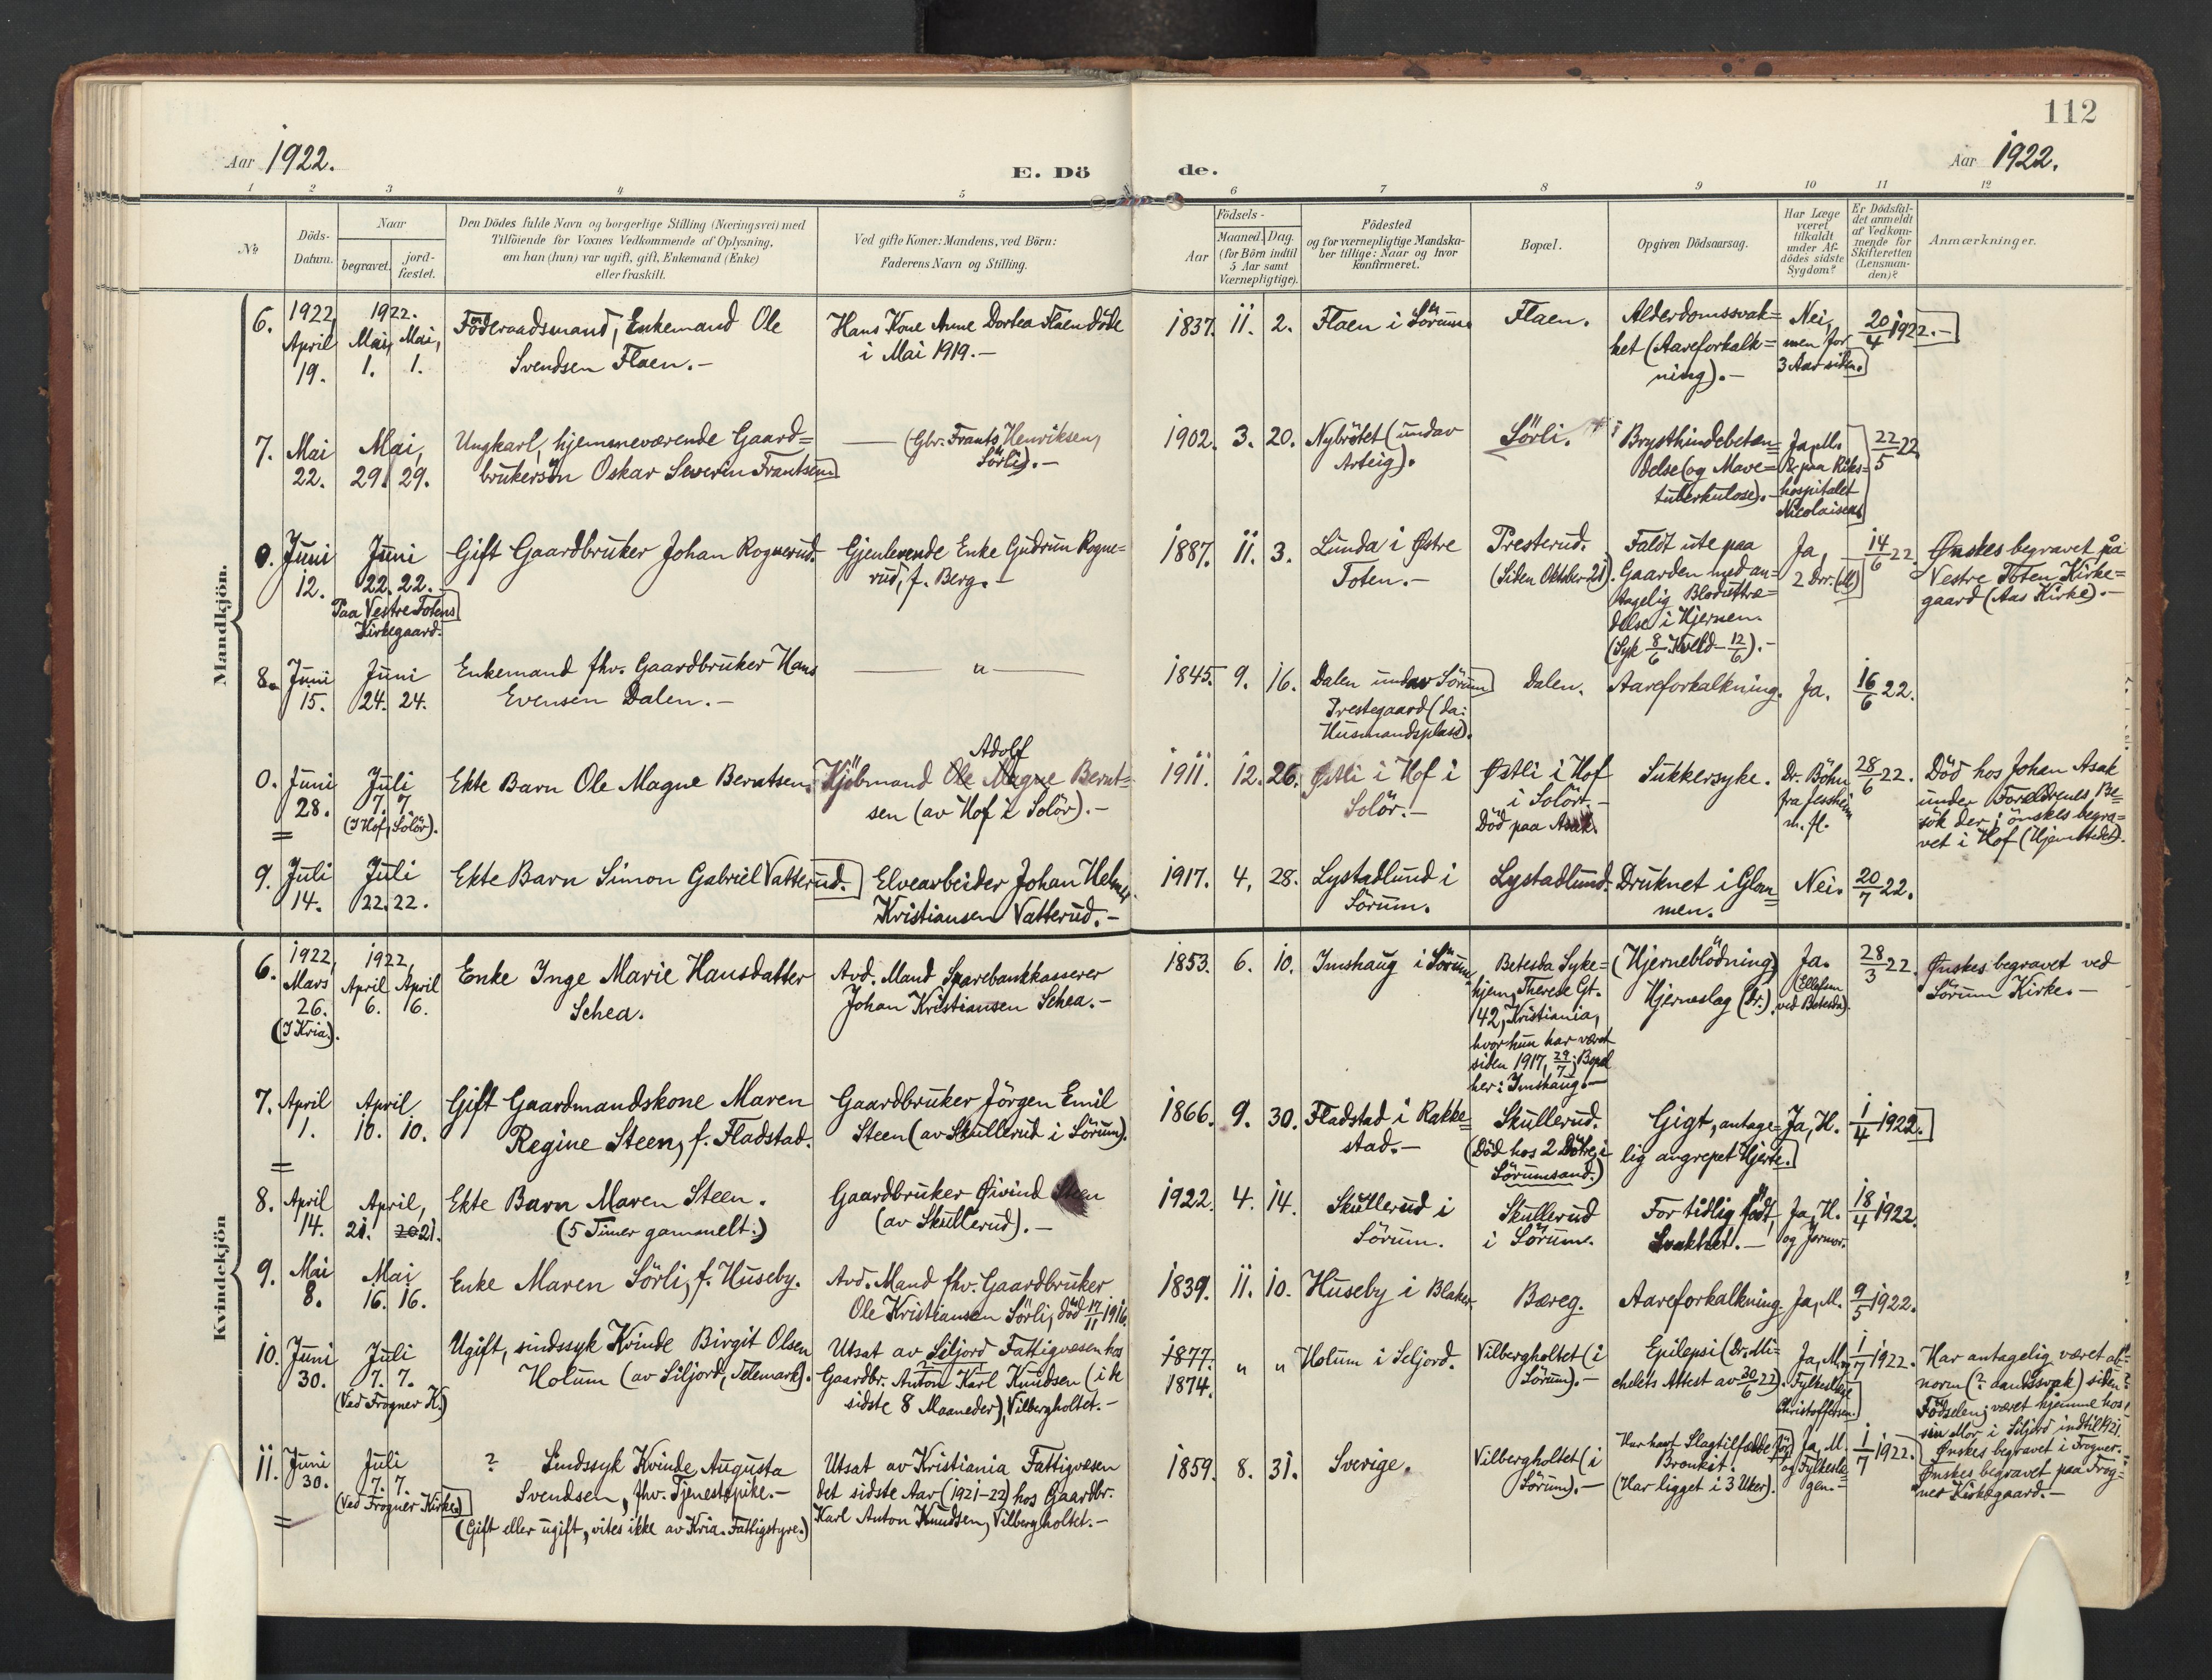 112
Aar 1922.
E. Dö de.
Aar 1922.
1 2 3 4 5 6 7 8 9 10 11 12
No
Döds-
Datum.
Naar
begravet.
jord-
fæstet.
Den Dödes fulde Navn og borgerlige Stilling (Næringsvei) med
Tilföiende for Voxnes Vedkommende af Oplysning,
om han (hun) var ugift, gift, Enkemand (Enke)
eller fraskilt.
Ved gifte Koner: Mandens, ved Börn:
Faderens Navn og Stilling.
Födsels-
Aar
Maaned. Dag.
(for Börn indtil
5 Aar samt
Værnepligtige).
Födested
og for værnepligtige Mandska-
ber tillige: Naar og hvor
konfirmeret.
Bopæl.
Opgiven Dödsaarsag.
Har Læge
været
tilkaldt
under Af-
dödes sidste
Sygdom?
Er Dödsfal-
det anmeldt
af Vedkom-
mende for
Skifteretten
(Lensman-
den)?
Anmærkninger.
Mandkjön.
6.
1922
April
19.
1922.
Mai, Mai,
1. 1.
Föderaadsmand, Enkemand Ole
Svendsen Flaen.-
Hans Kone Anne Dortea Flaen döde
i Mai 1919.-
1837. 11. 2.
Flaen i Sörum.
Flaen.
Alderdomssvak=
het (Aareforkalk=
ning).-
Nei,
men for
3 Aar siden.
20/4 1922.-
7.
Mai
22.
Mai,
29. 29.
Ungkarl, hjemmeværende Gaard=
brukersön Oskar Severin Frantsen
(Gbr. Frants Henriksen,
Sörli).-
1902. 3. 20.
Nybrötet (undav
Arteig).
Sörli.
Brysthindebeten=
delse (og Mave=
tuberkulose).-
Ja, M.
& paa Riks=
hospitalet
Nicolaisens
22/5 22
0.
Juni
12.
Juni
22. 22.
Paa Vestre Totens
Kirkegaard.
Gift Gaardbruker Johan Rognerud.
Gjenlevende Enke Gudrun Rogne=
rud, f. Berg.-
1887. 11. 3.
Lunda i Østre
Toten.-
Presterud.
(Siden Oktober 21).
Faldt ute paa
Gaarden med an=
tagelig Bloduttræ=
delse i Hjernen.
(Syk 8/6 Kveld - 12/6).-
Ja,
2 Drr. (M)
14/6 22
Ønskes begravet på
Vestre Toten Kirke=
gaard (Aas Kirke).-
8.
Juni
15.
Juni
24. 24.
Enkemand fhv. Gaardbruker Hans
Evensen Dalen.-
— " —
1845. 9. 16.
Dalen undav Sörum
Prestegaard (da:
Husmandsplass).
Dalen.
Aareforkalkning.
Ja.
16/6 22.
0.
Juni
28.
Juli
7. 7.
(I Hof, Solör).
Ekte Barn Ole Magne Berntsen.
Adolf
Kjöbmand Ole Magne Bernt=
sen (av Hof i Solör).-
1911. 12. 26.
Østli i Hof i
Solör.-
Østli i Hof
i Solör.-
Död paa Asak.
Sukkersyke.
Dr. Böhn
fra Jessheim
m. fl.
28/6 22.
Död hos Johan Asak
under Forældrenes Be=
sök der; önskes begra=
vet i Hof (Hjemstedet).
9.
Juli
14.
Juli
22. 22.
Ekte Barn Simon Gabriel Vatterud.
Elvearbeider Johan Helmer
Kristiansen Vatterud.-
1917. 4. 28.
Lystadlund i
Sörum.
Lystadlund.
Druknet i Glom=
men.
Nei.
20/7 22.
Kvindekjön
6.
1922,
Mars
26.
(I Kria).
1922,
April April
6. 16.
Enke Inge Marie Hansdatter
Schea.
Avd. Mand Sparebankkasserer
Johan Kristiansen Schea.-
1853. 6. 10.
Imshaug i Sörum
Betesda Syke=
hjem, Therese Gt.
42, Kristiania,
hvor hun har været
siden 1917, 29/7; Bopæl
her: Imshaug.-
(Hjerneblödning)
Hjerneslag (Dr.).
Ja.
(Ellefsen
ved Betesda).
28/3 22.
Ønskes begravet ved
Sörum Kirke.-
7.
April
1.
April
10. 10.
Gift Gaardmandskone Maren
Regine Steen, f. Fladstad.
Gaardbruker Jörgen Emil
Steen (av Skullerud i Sörum).
1866. 9. 30.
Fladstad i Rakke=
stad.-
Skullerud.
(Död hos 2 Dötre, i
Sörumsand.)
Gigt, antage=
lig angrepet Hjerte.
Ja, H.
1/4 1922.
8.
April
14.
April,
21. 20 21.
Ekte Barn Maren Steen.
(5 Timer gammelt.)
Gaardbruker Øivind Steen
(av Skullerud).-
1922. 4. 14.
Skullerud i
Sörum.
Skullerud
i Sörum.
For tidlig født,
Svakhet.-
Ja, H.
og Jormor.
18/4 1922.
9.
Mai
8.
Mai
16. 16.
Enke Maren Sörli, f. Huseby.
Avd. Mand fhv. Gaardbruker
Ole Kristiansen Sörli, död 17/11 1916.
1839. 11. 10.
Huseby i Blaker.
Bæreg.
Aareforkalkning
Ja, M.
9/5 1922.
10.
Juni
30.
Juli
7. 7.
(Ved Frogner K.)
Ugift, sindssyk Kvinde Birgit Olsen
Holum (av Siljord, Telemark).
Utsat av Siljord Fattigvæsen hos
Gaardbr. Anton Karl Knudsen (i de
sidste 8 Maaneder), Vilbergholtet.-
1877.
1874. " "
Holum i Seljord.
Vilbergholtet (i
Sörum).-
Epilepsi (Dr. Mi=
chelets Attest av 30/6 22).
Ja, M. og
Fylkeslæge
Christoffersen.
1/7 1922.
Har antagelig været ab=
norm (? aandssvak) siden
Födselen; været hjemme hos
sin Mor i Siljord indtil 1921.
Ønskes begravet i Frogner.
11.
Juni
30.
Juli
7. 7.
(Ved Frogner Kirke)
? Sindssyk Kvinde Augusta
Svendsen, fhv. Tjenestepike.-
(Gift eller ugift, vites ikke av Kria. Fattigstyre.)
Utsat av Kristiania Fattigvæsen
det sidste Aar (1921-22) hos Gaardbr.
Karl Anton Knudsen, Vilbergholtet.-
1859. 8. 31.
Sverige.
Vilbergholtet (i
Sörum).-
Har havt Slagtilfælde för
Bronkit.
(Har ligget i 3 Uker).
Ja, M.
og Fylkeslæ=
gen.-
1/7 1922.
Ønskes begravet paa Frog=
ner Kirkegaard.-